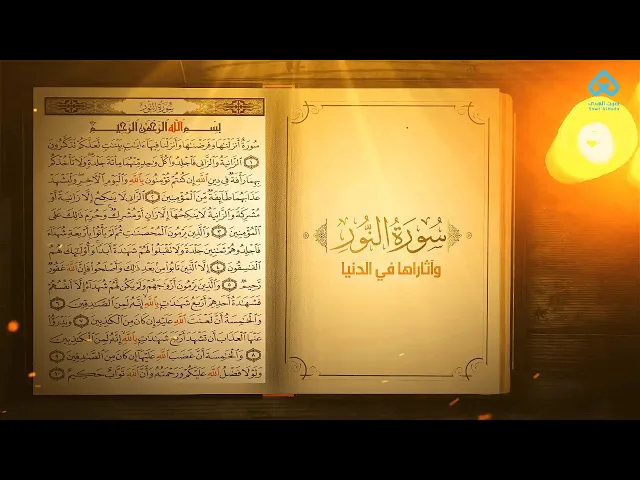 سُورَةُ النُّورِ
بِسْمِ اللَّهِ الرَّحْمَٰنِ الرَّحِيمِ
سُورَةٌ أَنزَلْنَاهَا وَفَرَضْنَاهَا وَأَنزَلْنَا فِيهَا آيَاتٍ بَيِّنَاتٍ لَّعَلَّكُمْ تَذَكَّرُونَ
١ الزَّانِيَةُ وَالزَّانِي فَاجْلِدُوا كُلَّ وَاحِدٍ مِّنْهُمَا مِائَةَ جَلْدَةٍ وَلَا تَأْخُذْكُم
بِهِمَا رَأْفَةٌ فِي دِينِ اللَّهِ إِن كُنتُمْ تُؤْمِنُونَ بِاللَّهِ وَالْيَوْمِ الْآخِرِ وَلْيَشْهَدْ
عَذَابَهُمَا طَائِفَةٌ مِّنَ الْمُؤْمِنِينَ ٢ الزَّانِي لَا يَنكِحُ إِلَّا زَانِيَةً أَوْ
مُشْرِكَةً وَالزَّانِيَةُ لَا يَنكِحُهَا إِلَّا زَانٍ أَوْ مُشْرِكٌ وَحُرِّمَ ذَٰلِكَ عَلَى
الْمُؤْمِنِينَ ٣ وَالَّذِينَ يَرْمُونَ الْمُحْصَنَاتِ ثُمَّ لَمْ يَأْتُوا بِأَرْبَعَةِ شُهَدَاءَ
فَاجْلِدُوهُمْ ثَمَانِينَ جَلْدَةً وَلَا تَقْبَلُوا لَهُمْ شَهَادَةً أَبَدًا وَأُولَٰئِكَ هُمُ
الْفَاسِقُونَ ٤ إِلَّا الَّذِينَ تَابُوا مِن بَعْدِ ذَٰلِكَ وَأَصْلَحُوا فَإِنَّ اللَّهَ غَفُورٌ
رَّحِيمٌ ٥ وَالَّذِينَ يَرْمُونَ أَزْوَاجَهُمْ وَلَمْ يَكُن لَّهُمْ شُهَدَاءُ إِلَّا أَنفُسُهُمْ
فَشَهَادَةُ أَحَدِهِمْ أَرْبَعُ شَهَادَاتٍ بِاللَّهِ إِنَّهُ لَمِنَ الصَّادِقِينَ ٦
وَالْخَامِسَةُ أَنَّ لَعْنَتَ اللَّهِ عَلَيْهِ إِن كَانَ مِنَ الْكَاذِبِينَ ٧ وَيَدْرَؤُا
عَنْهَا الْعَذَابَ أَن تَشْهَدَ أَرْبَعَ شَهَادَاتٍ بِاللَّهِ إِنَّهُ لَمِنَ الْكَاذِبِينَ
٨ وَالْخَامِسَةَ أَنَّ غَضَبَ اللَّهِ عَلَيْهَا إِن كَانَ مِنَ الصَّادِقِينَ ٩
وَلَوْلَا فَضْلُ اللَّهِ عَلَيْكُمْ وَرَحْمَتُهُ وَأَنَّ اللَّهَ تَوَّابٌ حَكِيمٌ ١٠
سُورَةُ النُّورِ
وآثاراها في الدنيا